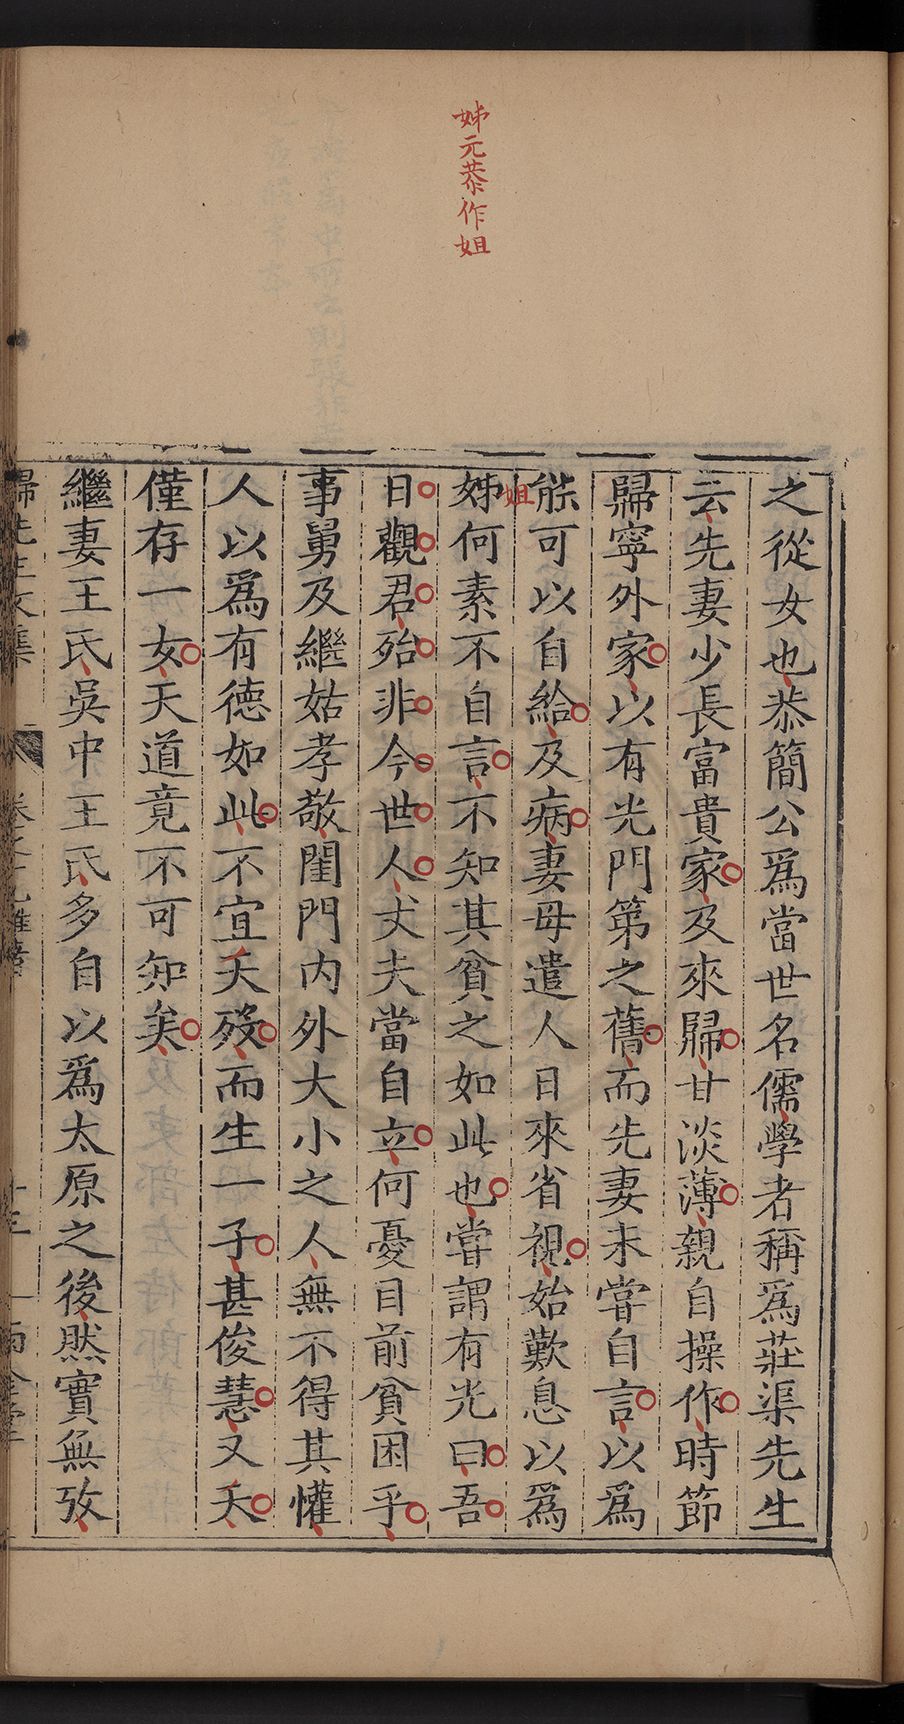 姊元恭作姐
之從女也恭簡公爲當世名儒學者稱爲莊渠先生
云先妻少長富貴家及來歸甘淡薄親自操作時節
歸寧外家以有光門第之舊而先妻未嘗自言以爲
能可以自給及病妻母遣人日來省視始歎息以爲
姐
姊何素不自言不知其貧之如此也嘗謂有光曰吾
日觀君殆非今世人丈夫當自立何憂目前貧困乎
事舅及繼姑孝敬閨門內外大小之人無不得其懽
人以爲有德如此不宜夭歿而生一子甚俊慧又夭
僅存一女天道竟不可知矣
繼妻王氏吳中王氏多自以爲太原之後然實無攷
歸先生文集